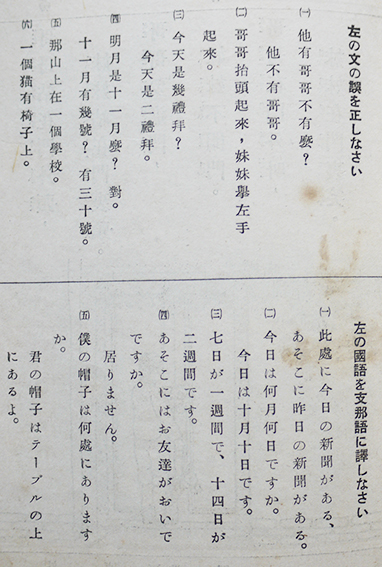 左の文の誤を正しなさい
㈠ 他有哥哥不有麽？
他不有哥哥。
㈡ 哥哥抬頭起來，妹妹擧左手
起來。
㈢ 今天是幾禮拜？
今天是二禮拜。
㈣ 明月是十一月麽？ 對。
十一月有幾號？ 有三十號。
㈤ 那山上在一個學校。
㈥ 一個猫有椅子上。
左の國語を支那語に譯しなさい
㈠ 此處に今日の新聞がある、
あそこに昨日の新聞がある。
㈡ 今日は何月何日ですか。
今日は十月十日です。
㈢ 七日が一週間で、十四日が
二週間です。
㈣ あそこにはお友達がおいで
ですか。
居りません。
㈤ 僕の帽子は何處にあります
か。
君の帽子はテーブルの上
にあるよ。